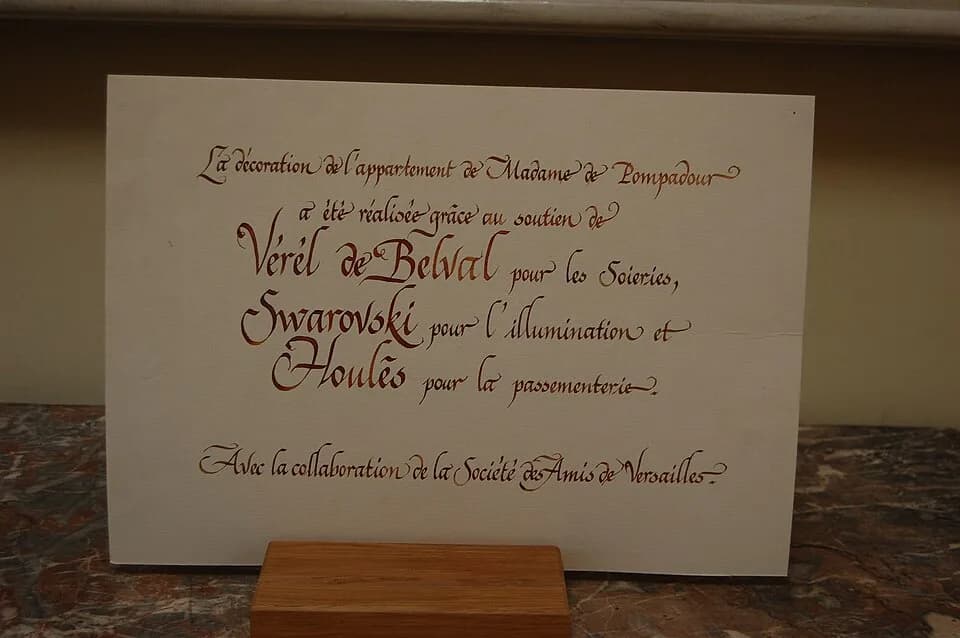 La décoration de l'appartement de Madame de Pompadour
a été réalisée grâce au soutien de
Vérél de Belval pour les Soieries,
Swarovski pour l'illumination et
Houlès pour la passementerie.
Avec la collaboration de la Société des Amis de Versailles.